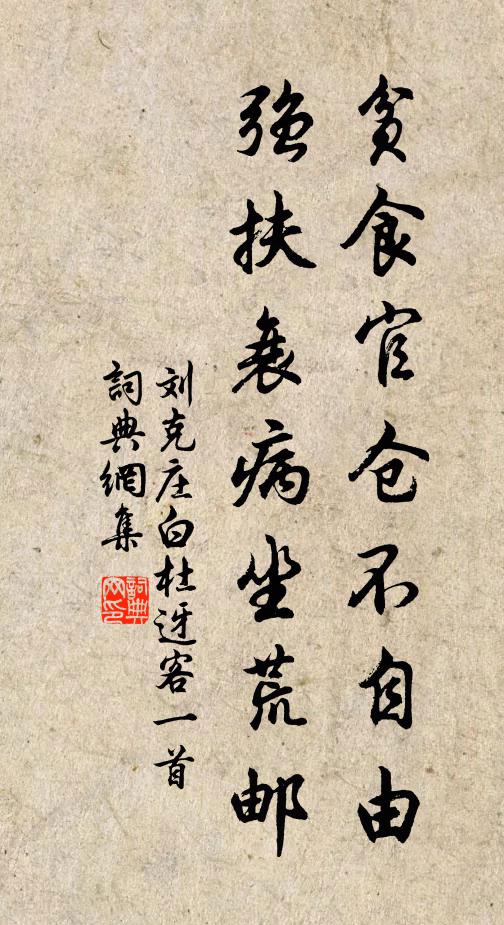 贫食官仓不自由
强扶衰病坐荒邮
刘克庄白杜迓客一首
詞典網集
詞典
网印